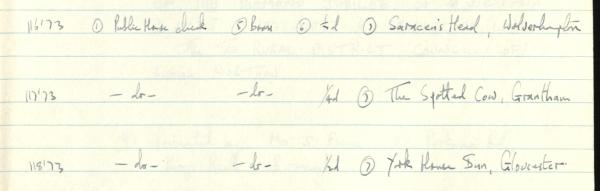 116'73 ① Public House check ⑤ Brass ⑥ ½d ⑦ Saracen's Head, Wolverhampton
117'73 — do — — do — 1½d ⑦ The Spotted Cow, Grantham
118'73 — do — — do — 1½d ⑦ York House Inn, Gloucester.